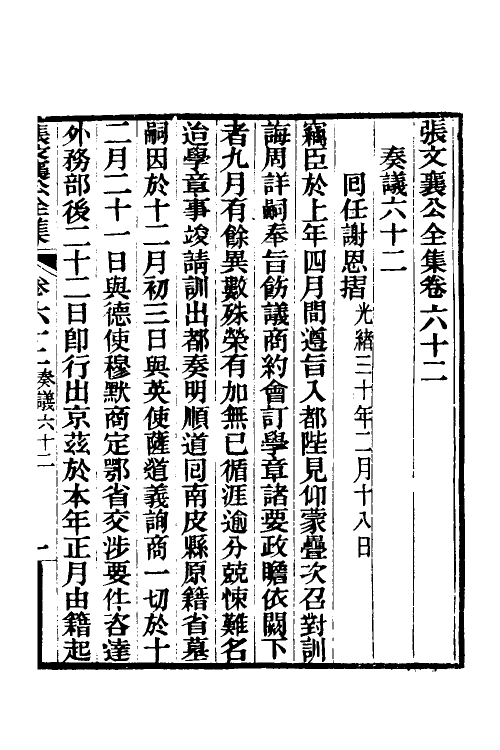 張文襄公全集卷六十二
奏議六十二
回任謝恩摺光緒三十年二月十八日
竊臣於上年四月間遵旨入都陛見仰蒙疊次召對訓
誨周詳嗣奉旨飭議商約會訂學章諸要政瞻依闕下
者九月有餘異數殊榮有加無已循涯逾分兢悚難名
迨學章事竣請訓出都奏明順道回南皮縣原籍省墓
嗣因於十二月初三日與英使薩道義詢商一切於十
二月二十一日與德使穆默商定鄂省交涉要件咨達
外務部後二十二日卽行出京茲於本年正月由籍起
張文襄公全集 卷六十二 奏議六十二 一